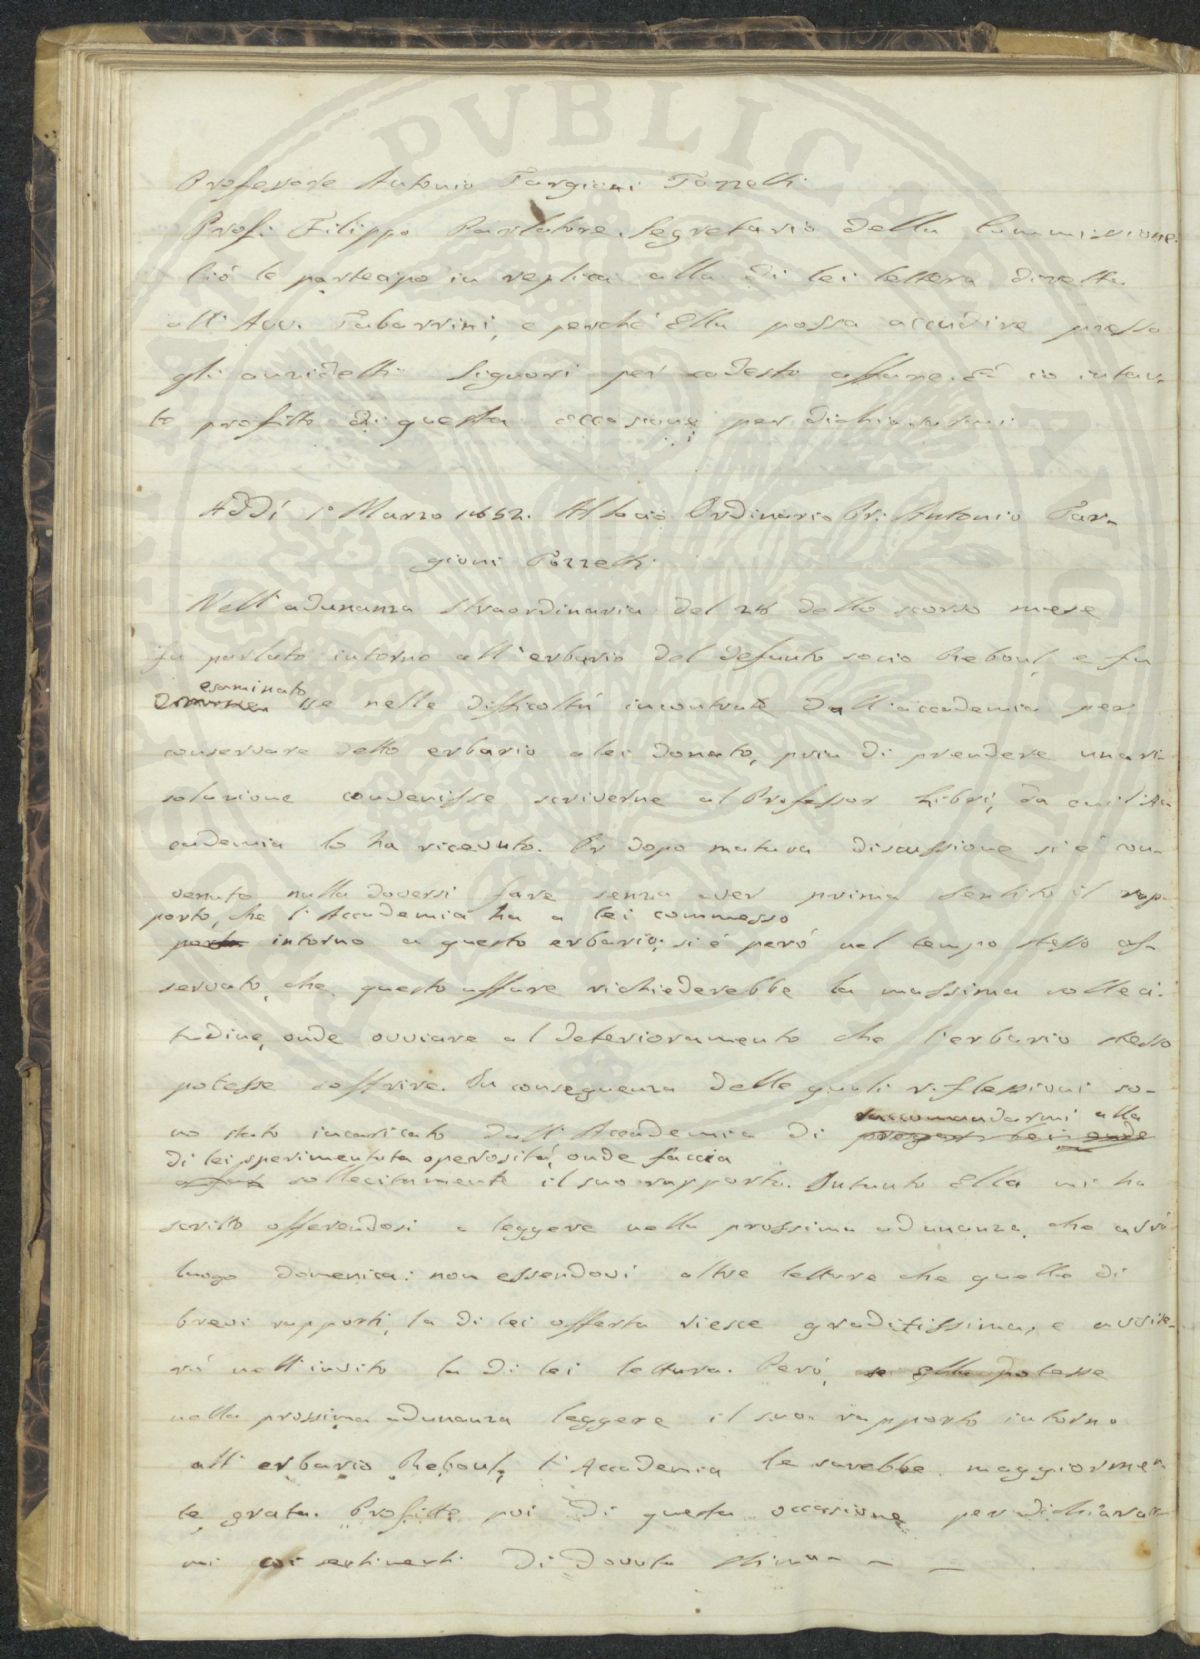 Professore Antonio Targioni Tozzetti
Prof: Filippo Parlatore. Segretario della Commissione.
Ciò le partecipo in replica alla di lei lettera diretta
all'Avv. Tabarrini, e perché Ella possa accudire presso
gli anzidetti Signori per codesto affare. Ed io intan-
to profitto di questa occasione per dichiararmi:
Addì 1° Marzo 1852. Al Socio Ordinario Pr: Antonio Tar-
gioni Tozzetti.
Nell'adunanza straordinaria del 28 dello scorso mese
fu parlato intorno all'erbario del defunto socio Reboul, e fu
esaminato
se nelle difficoltà incontrate dall'accademia per
conservare detto erbario a lei donato, pria di prendere una ri-
soluzione convenisse scriverne al Professor Libri, da cui l'Ac
cademia lo ha ricevuto. Or dopo matura discussione si è con-
venuto nulla doversi fare senza aver prima sentito il rap-
porto, che l'Accademia ha a lei commesso
porto intorno a questo erbario; si è però nel tempo stesso os-
servato, che questo affare richiederebbe la massima solleci-
tudine, onde ovviare al deterioramento che l'erbario stesso
potesse soffrire. In conseguenza delle quali riflessioni so-
raccomandarmi alla
no stato incaricato dall'Accademia di pregar lei onde
di lei sperimentata operosità, onde faccia
sollecitamente il suo rapporto. Intanto Ella mi ha
scritto offerendosi a leggere nella prossima adunanza, che avrà
luogo domenica: non essendovi altre letture che quelle di
brevi rapporti, la di lei offerta riesce graditissima, e avvise-
rò nell'invito la di lei lettura. Però, se ella potesse
nella prossima adunanza leggere il suo rapporto intorno
all'erbario Reboul, l'Accademia le sarebbe maggiormen
te grata. Profitto poi di questa occasione per dichiarar-
mi coi sentimenti di dovuta stima — —